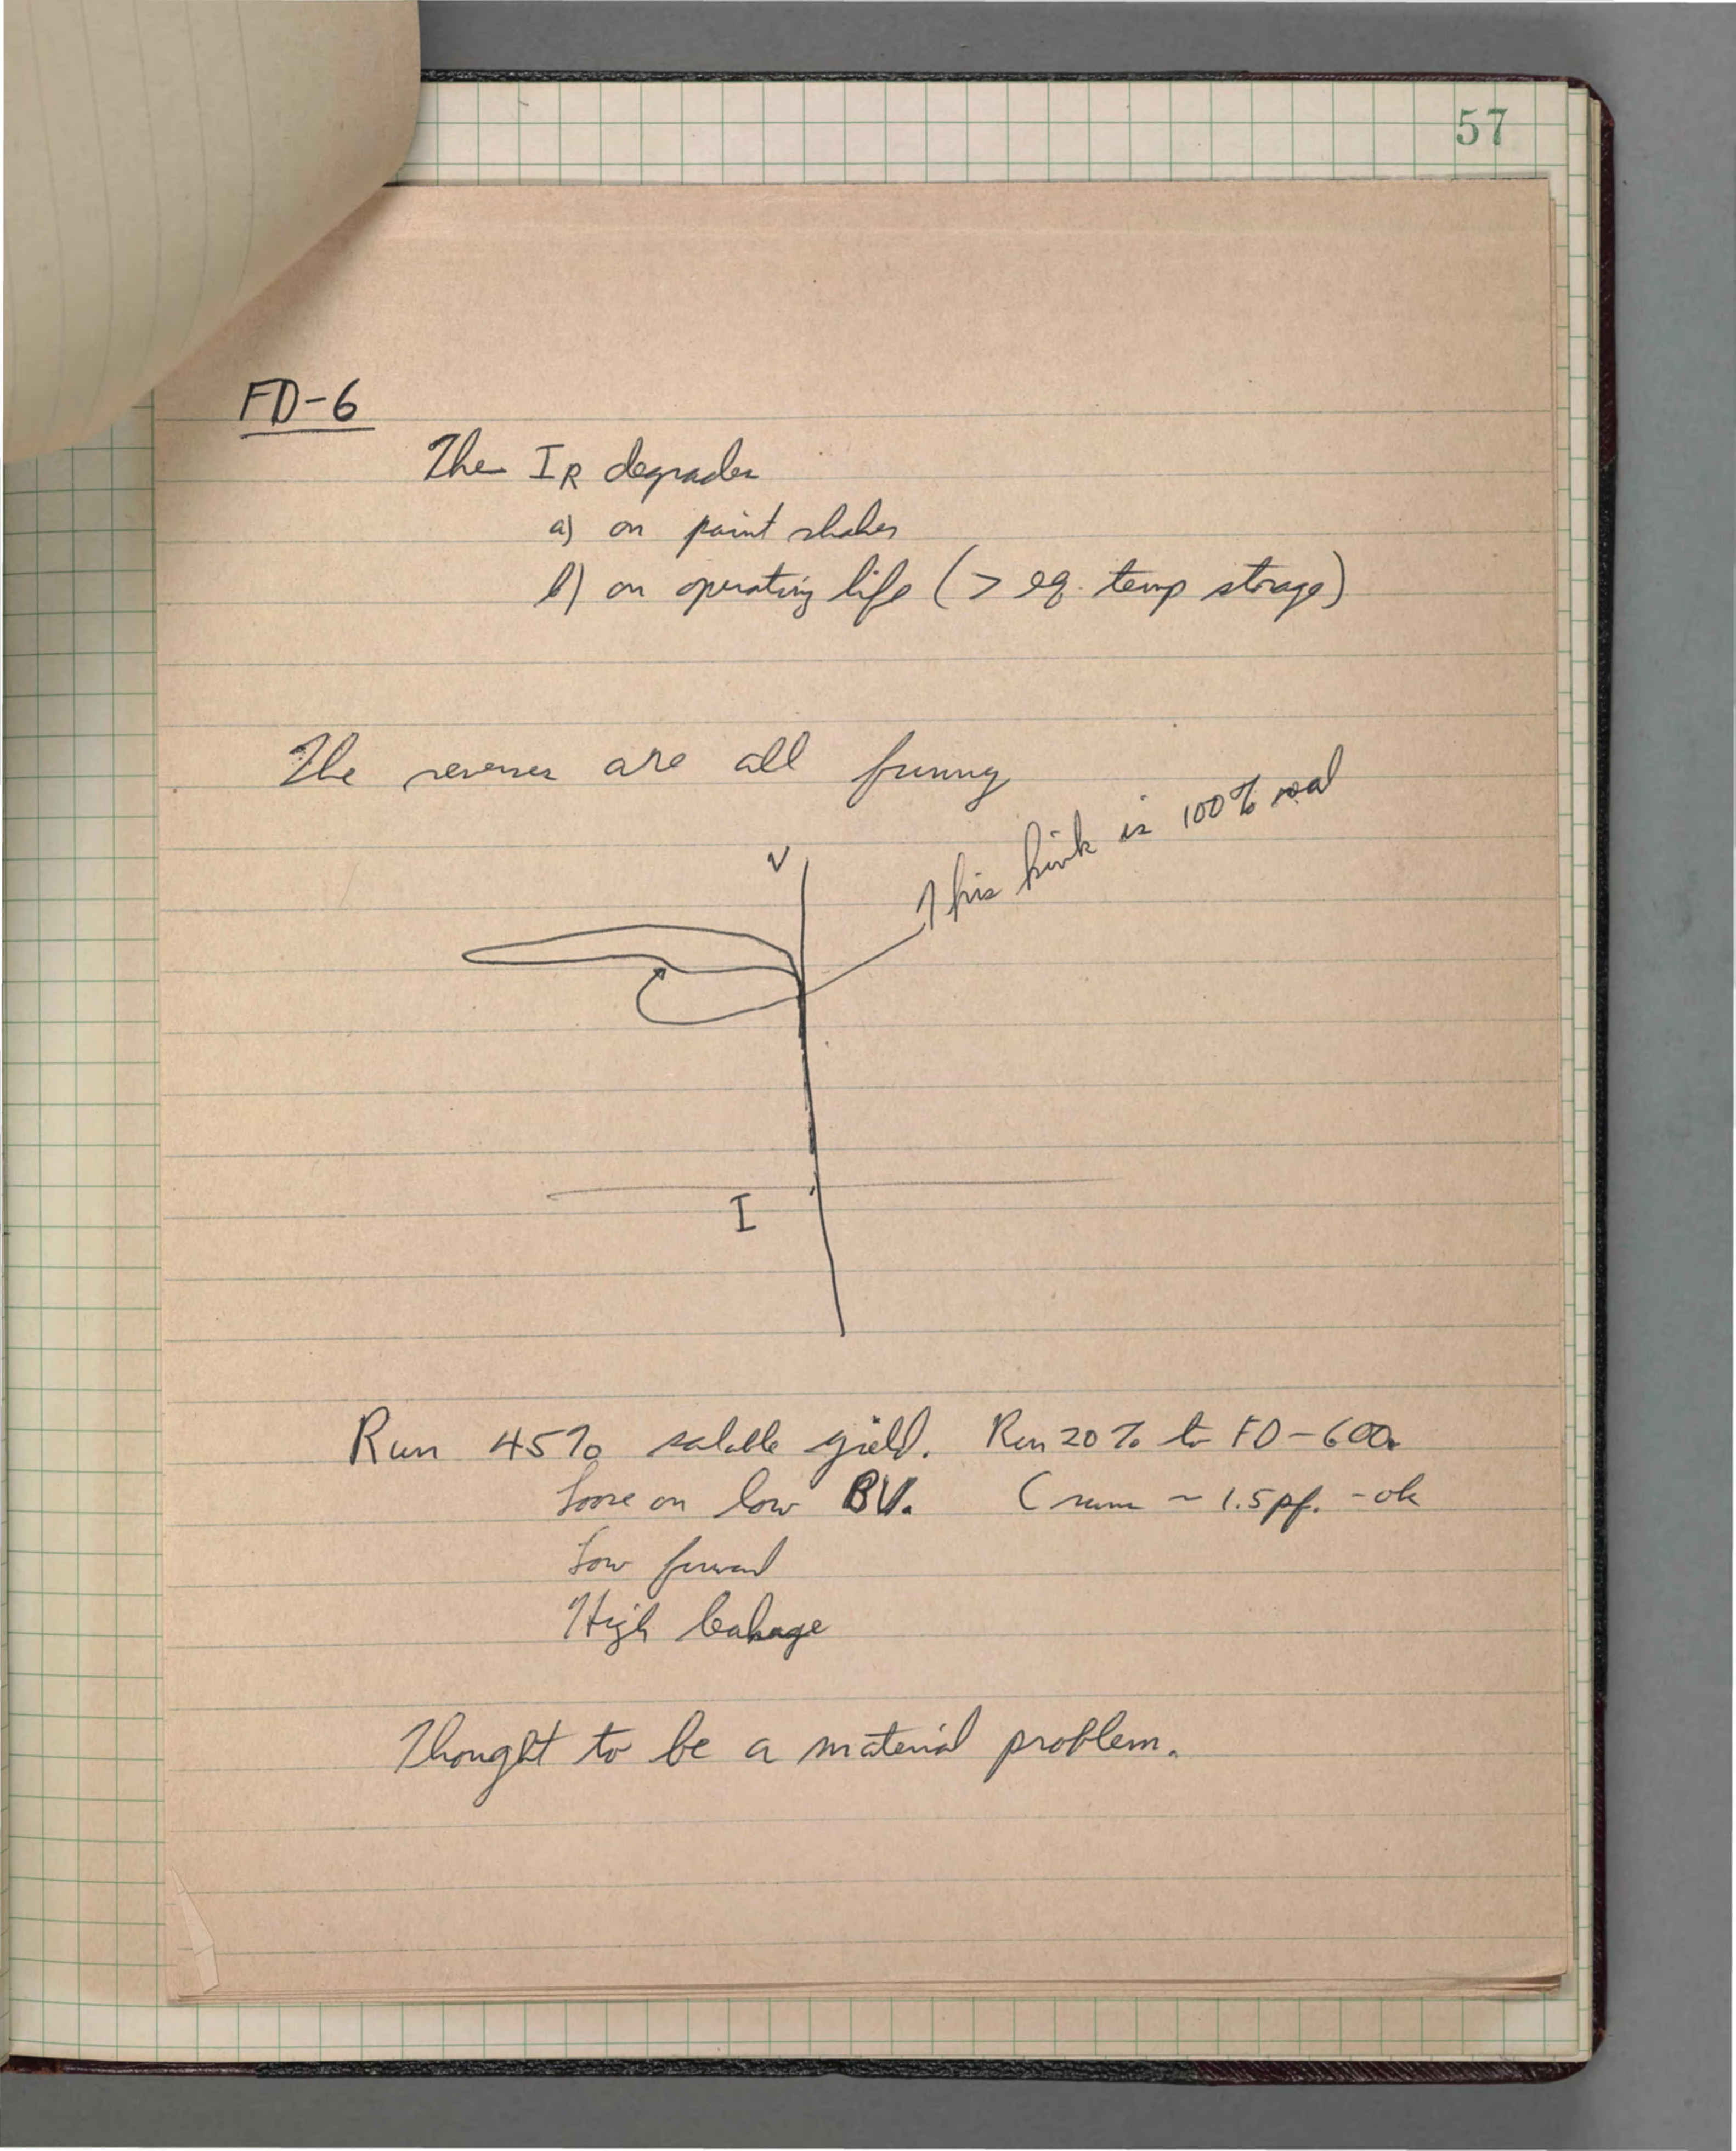 57
FD-6
The IR degrades
a) on paint shaker
b) on operating life (> eq. temp storage)
The reverses are all funny
This kink is 100% real
V
I
Run 45% salable yield. Run 20% to FD-600.
Lose on low BV. C runs ~ 1.5 pf. - ok
Low forward
High leakage
Thought to be a material problem.